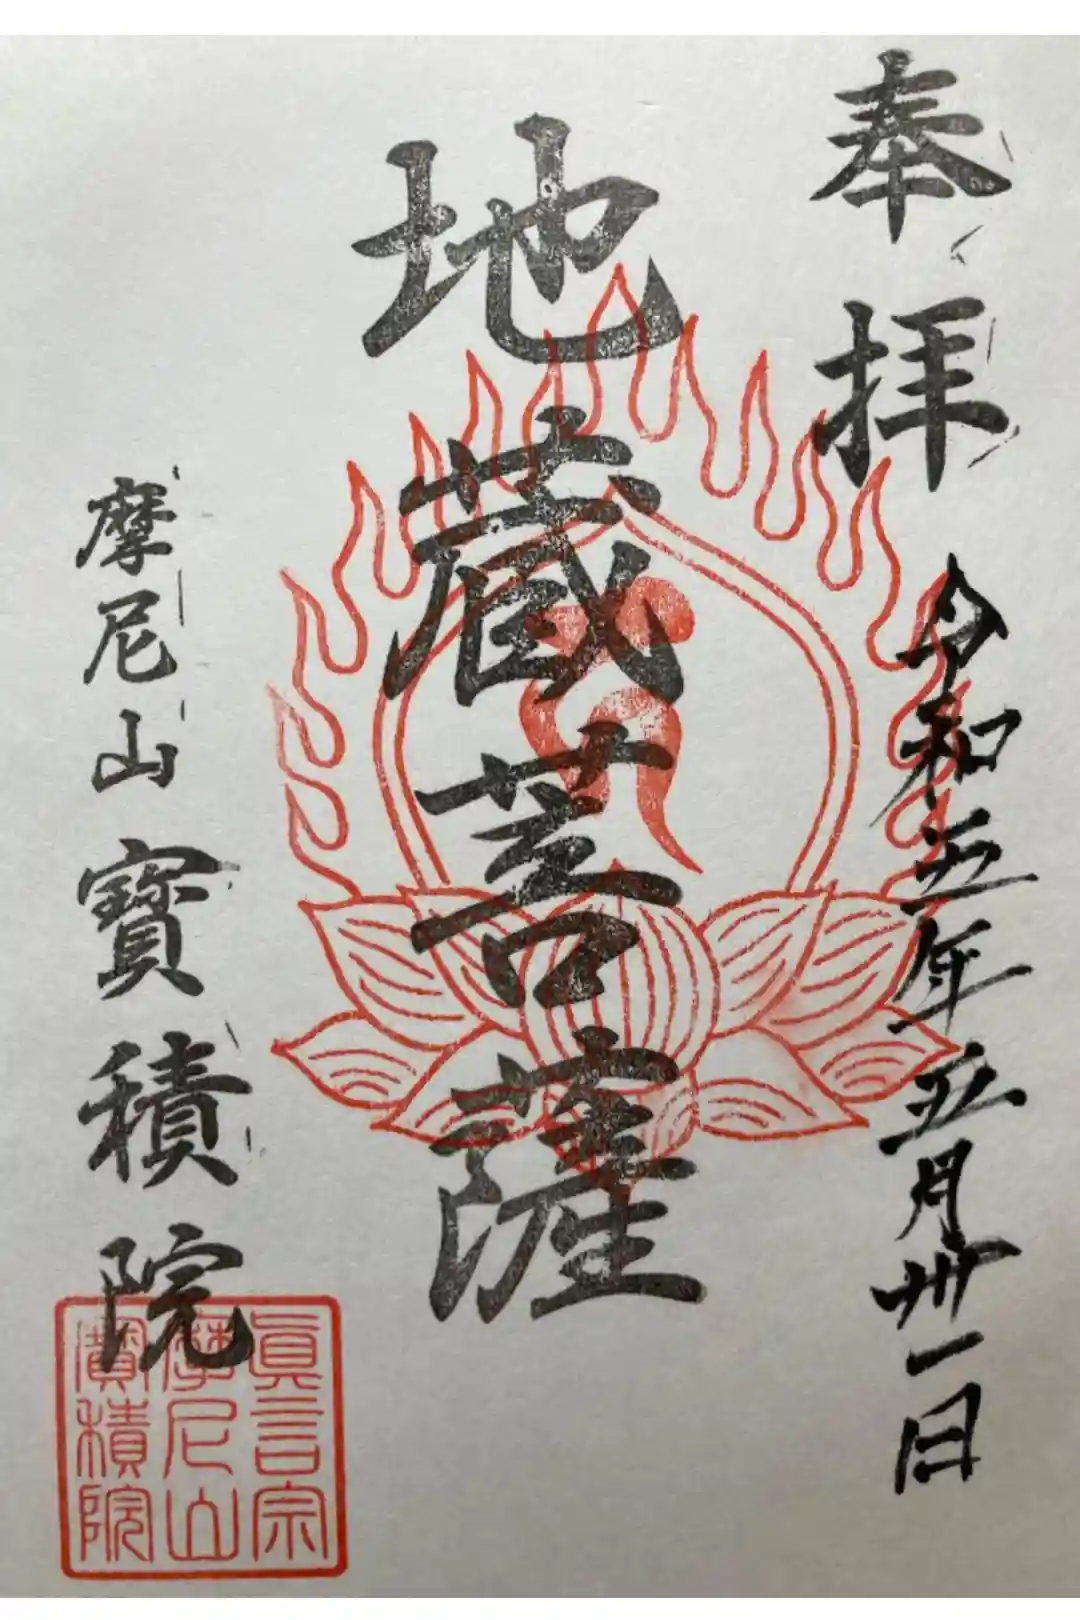 奉拝
令和五年五月卅一日
地蔵菩薩
摩尼山寶積院
眞言宗
摩尼山
寶積院